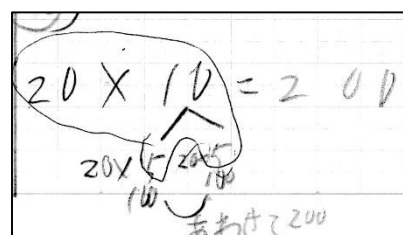 20 × 10 = 200
20×5 20×5
100 100
あわせて200